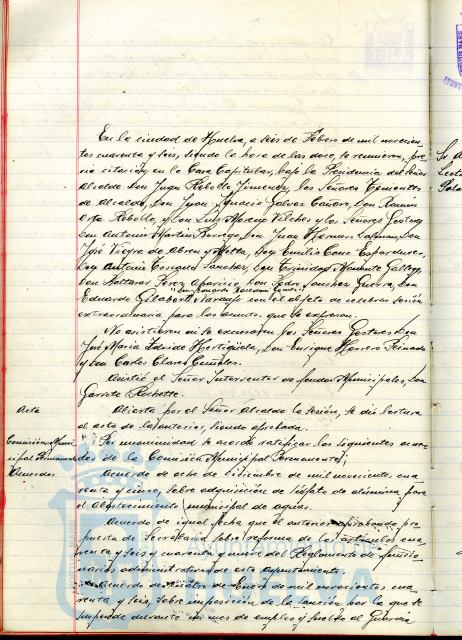 En la ciudad de Huelva, a seis de Febrero de mil novecien-
tos cuarenta y seis, siendo la hora de las doce, se reunieron, pre-
via citación, en la Casa Capitular, bajo la Presidencia del Señor
Alcalde Don Juan Rebollo Jimenez, los Señores Tenientes
de Alcalde, Don Juan Ignacio Galvez Cañero, Don Ramón
Rebollo, y Don Luis Moreno Vilches y los Señores Gestores
Don Antonio Martín Borrego, Don Juan Hermoso
José Viegre de Abreu y Motta, Don Emilio Cano
Don Antonio Sanchez, Don Trinidad Gallego,
Don Baltasar Perez Aparicio, Don Pedro Sanchez Guerra, Don
Eduardo Gilabert Naranjo con el objeto de celebrar sesión
extraordinaria para los asuntos que se expresan.
No asistieron ni se excusaron los Señores Gestores Don
José María Hortigüela, Don Enrique Herrero
y Don Carlos Claros
Asistió el Señor Interventor de fondos Municipales, Don
Garrote
Acta
Abierta por el Señor Alcalde la sesión, se dió lectura
al acta de la anterior, siendo aprobada.
Comisión Muni-
cipal Permanente
Acuerdos
Por unanimidad se acordó ratificar los siguientes acuer-
dos de la Comisión Municipal Permanente;
Acuerdo de ocho de de mil novecientos cua-
renta y cinco, sobre adquisición de sulfato de alumina para
el Abastecimiento municipal de aguas.
Acuerdo de igual fecha que el anterior aprobando pro-
puesta de Secretaría sobre reforma de los artículos cua-
renta y seis y cuarenta y nueve del Reglamento de funcio-
narios administrativos de este Ayuntamiento.
Acuerdo de de Enero de mil novecientos cua-
renta y seis, sobre imposición de la sanción por la que se
suspende durante un mes de empleo y sueldo al Guardia
AYUNTAMIENTO DE
HUELVA